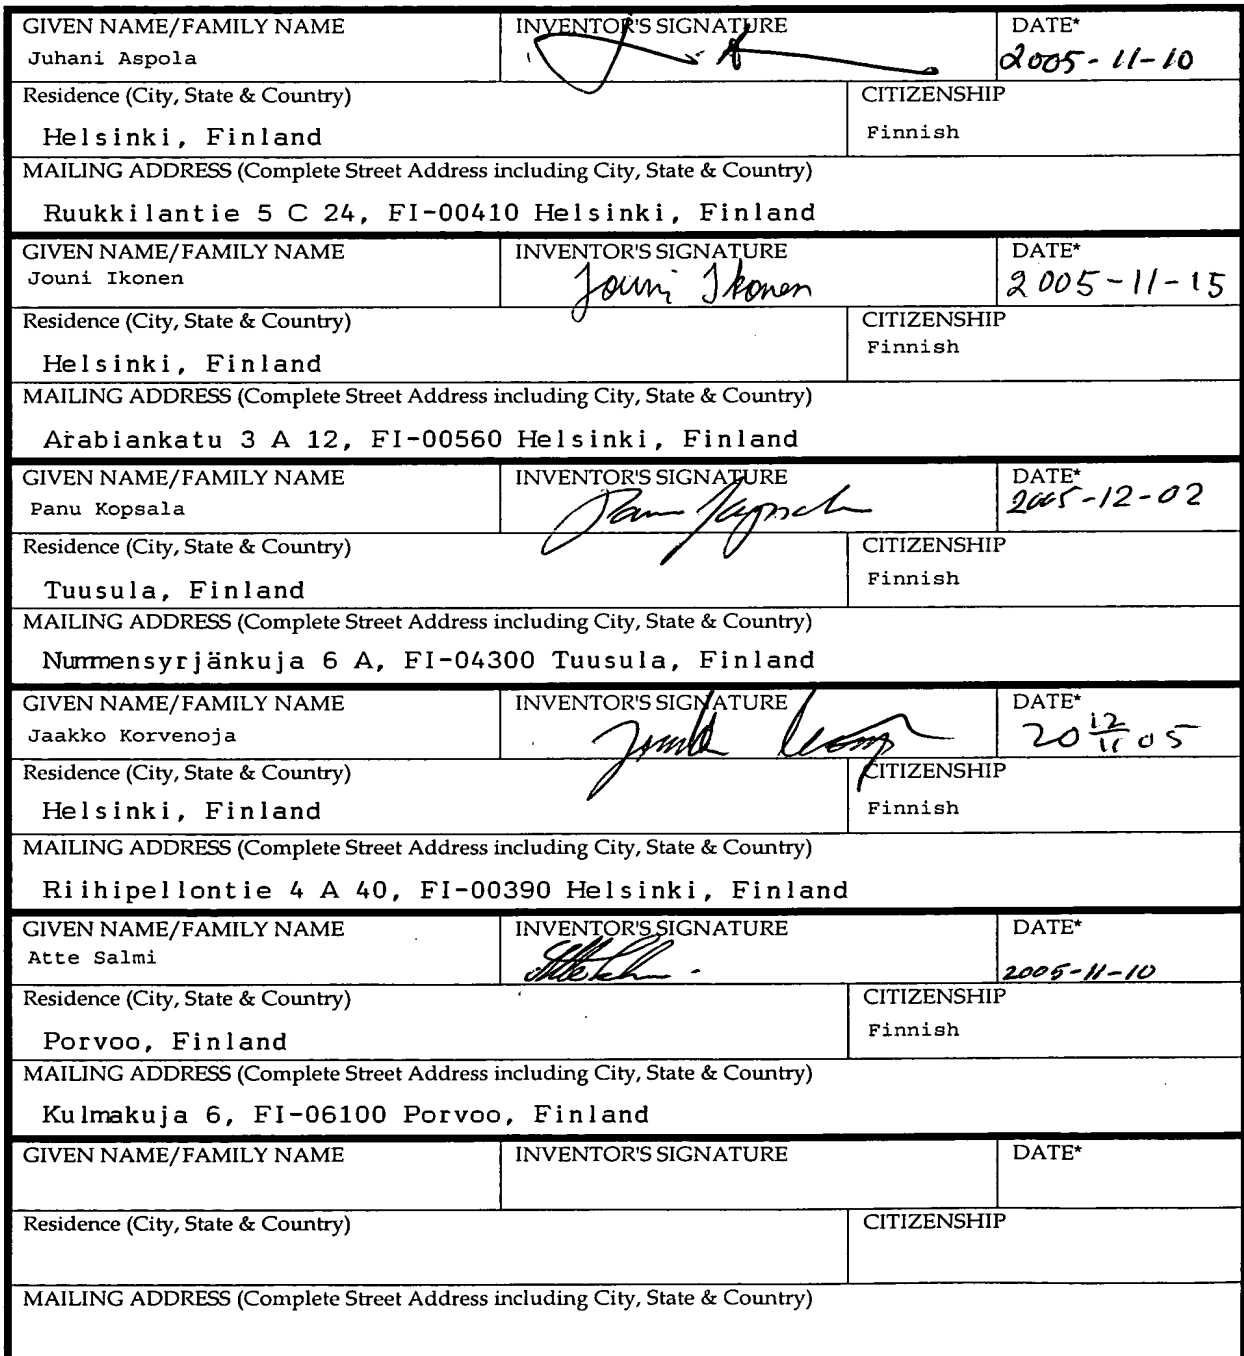 GIVEN NAME/FAMILY NAME INVENTOR'S SIGNATURE DATE*
Juhani Aspola 2005-11-10
Residence (City, State & Country) CITIZENSHIP
Helsinki, Finland Finnish
MAILING ADDRESS (Complete Street Address including City, State & Country)
Ruukkilantie 5 C 24, FI-00410 Helsinki, Finland
GIVEN NAME/FAMILY NAME INVENTOR'S SIGNATURE DATE*
Jouni Ikonen Jouni Ikonen 2005-11-15
Residence (City, State & Country) CITIZENSHIP
Helsinki, Finland Finnish
MAILING ADDRESS (Complete Street Address including City, State & Country)
Arabiankatu 3 A 12, FI-00560 Helsinki, Finland
GIVEN NAME/FAMILY NAME INVENTOR'S SIGNATURE DATE*
Panu Kopsala 2005-12-02
Residence (City, State & Country) CITIZENSHIP
Tuusula, Finland Finnish
MAILING ADDRESS (Complete Street Address including City, State & Country)
Nummensyrjänkuja 6 A, FI-04300 Tuusula, Finland
GIVEN NAME/FAMILY NAME INVENTOR'S SIGNATURE DATE*
Jaakko Korvenoja 20 12/11 05
Residence (City, State & Country) CITIZENSHIP
Helsinki, Finland Finnish
MAILING ADDRESS (Complete Street Address including City, State & Country)
Riihipellontie 4 A 40, FI-00390 Helsinki, Finland
GIVEN NAME/FAMILY NAME INVENTOR'S SIGNATURE DATE*
Atte Salmi 2005-11-10
Residence (City, State & Country) CITIZENSHIP
Porvoo, Finland Finnish
MAILING ADDRESS (Complete Street Address including City, State & Country)
Kulmakuja 6, FI-06100 Porvoo, Finland
GIVEN NAME/FAMILY NAME INVENTOR'S SIGNATURE DATE*
Residence (City, State & Country) CITIZENSHIP
MAILING ADDRESS (Complete Street Address including City, State & Country)